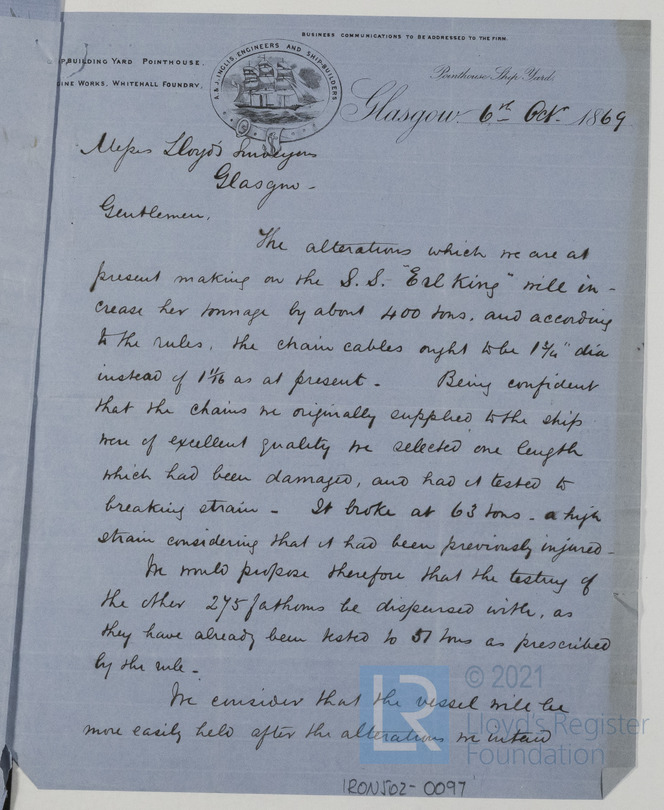 BUSINESS COMMUNICATIONS TO BE ADDRESSED TO THE FIRM.
PBUILDING YARD POINTHOUSE.
INE WORKS, WHITEHALL FOUNDRY.
A. & J. INGLIS, ENGINEERS AND SHIP-BUILDERS
Pointhouse Ship Yard.
Glasgow 6th Oct. 1869
Messrs Lloyd's Surveyors
Glasgow -
Gentlemen,
The alterations which we are at
present making on the S.S. "Erl King" will in-
crease her tonnage by about 400 tons, and according
to the rules, the chain cables ought to be 1 3/4" dia
instead of 1 11/16 as at present - Being confident
that the chains we originally supplied to the ship
were of excellent quality we selected one length
which had been damaged, and had it tested to
breaking strain - It broke at 63 tons - a high
strain considering that it had been previously injured -
We would propose therefore that the testing of
the other 275 fathoms be dispersed with, as
they have already been tested to 51 tons as prescribed
by the rule -
We consider that the vessel will be
more easily held after the alterations we intend
LR
© 2021
Lloyd's Register
Foundation
IRON502-0097